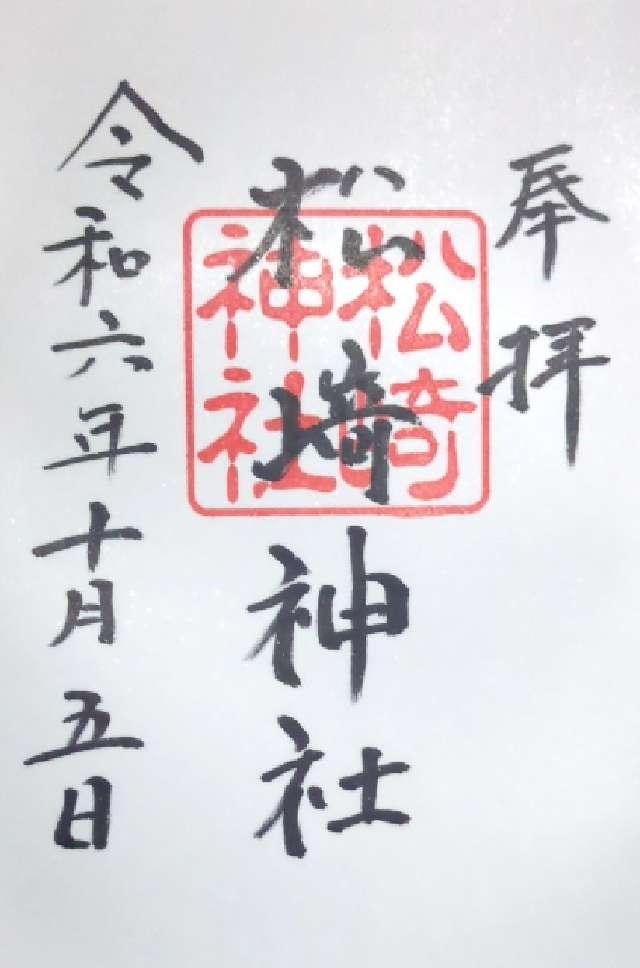 奉拝
松崎神社
松崎
神社
令和六年十月五日